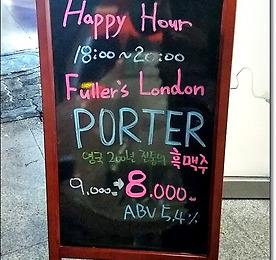 Happy Hour
18:00~20:00
Fuller's London
PORTER
영국 200년 전통의 흑맥주
9.000 → 8.000
ABV 5.4%